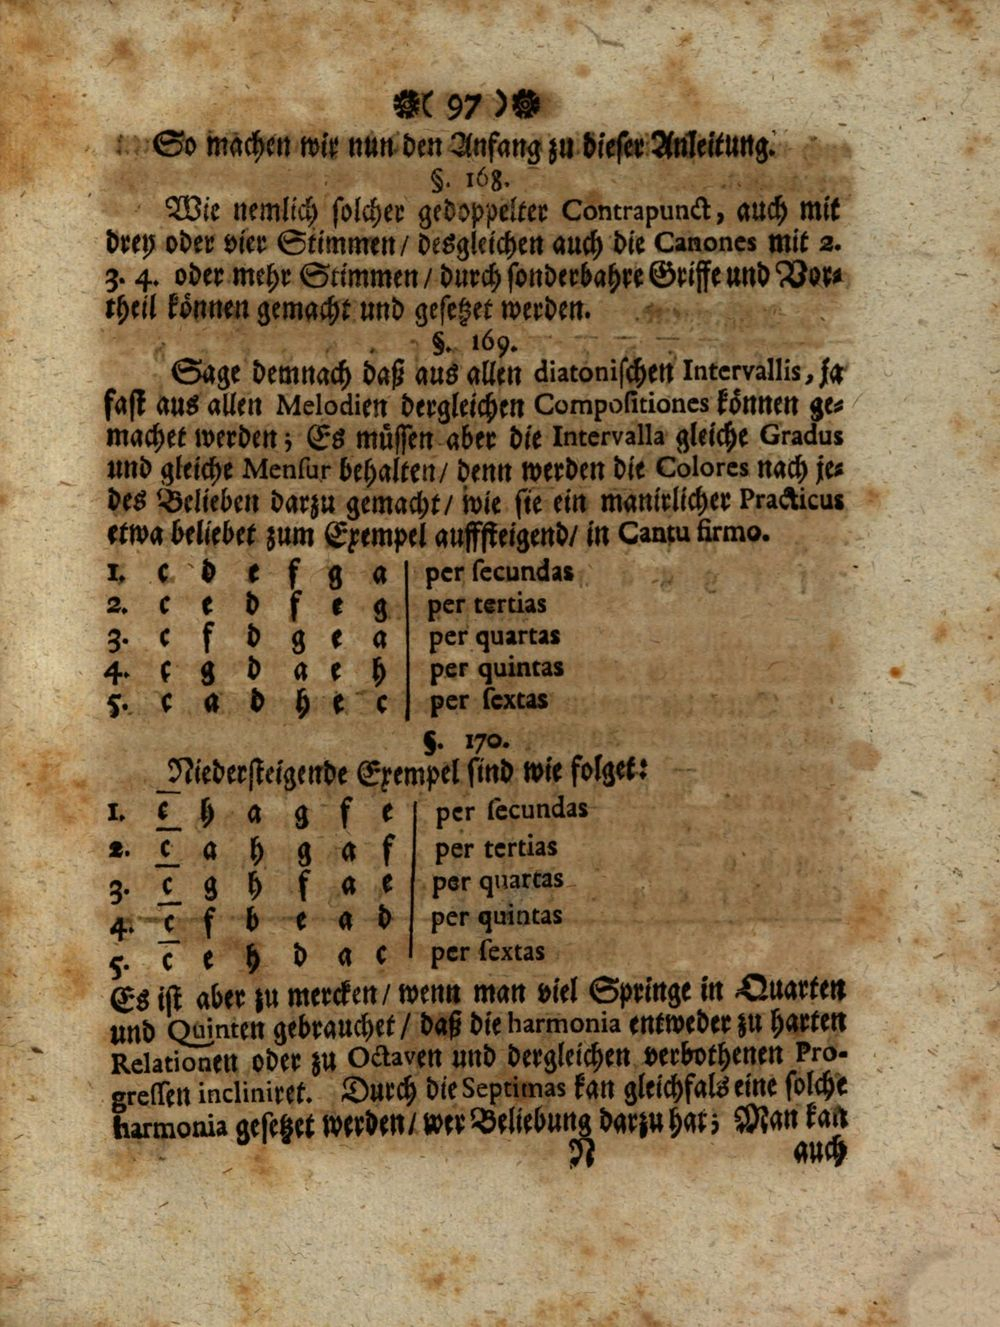 ( 97 )
So machen wir nun den Anfang zu dieser Anleitung.
§. 168.
Wie nemlich solcher gedoppelter Contrapunct, auch mit
drey oder vier Stimmen/ desgleichen auch die Canones mit 2.
3. 4. oder mehr Stimmen/ durch sonderbahre Griffe und Vor-
theil können gemacht und gesetzet werden.
§. 169.
Sage demnach daß aus allen diatonischen Intervallis, ja
fast aus allen Melodien dergleichen Compositiones können ge-
machet werden; Es müssen aber die Intervalla gleiche Gradus
und gleiche Mensur behalten/ denn werden die Colores nach je-
des Belieben darzu gemacht/ wie sie ein manirlicher Practicus
etwa beliebet zum Exempel auffsteigend/ in Cantu firmo.
1. c d e f g a | per secundas
2. c e d f e g | per tertias
3. c f d g e a | per quartas
4. c g d a e h | per quintas
5. c a d h e c | per sextas
§. 170.
Niedersteigende Exempel sind wie folget:
1. c h a g f e | per secundas
2. c a h g a f | per tertias
3. c g h f a e | per quartas
4. c f b e a d | per quintas
5. c e h d a c | per sextas
Es ist aber zu mercken/ wenn man viel Springe in Quarten
und Quinten gebrauchet/ daß die harmonia entweder zu harten
Relationen oder zu Octaven und dergleichen verbothenen Pro-
gressen incliniret. Durch die Septimas kan gleichfals eine solche
harmonia gesetzet werden/ wer Beliebung darzu hat; Man kan
N auch